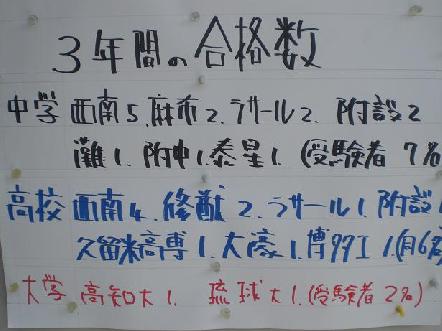 3年間の合格数
中学 西南5.麻布2.ラサール2. 附設2
灘1.附中1.泰星1.(受験者7名
高校 西南4.修猷2.ラサール1.附設
久留米高専1.大濠1.博多工1.(
大学 高知大1. 琉球大1.(受験者2名)